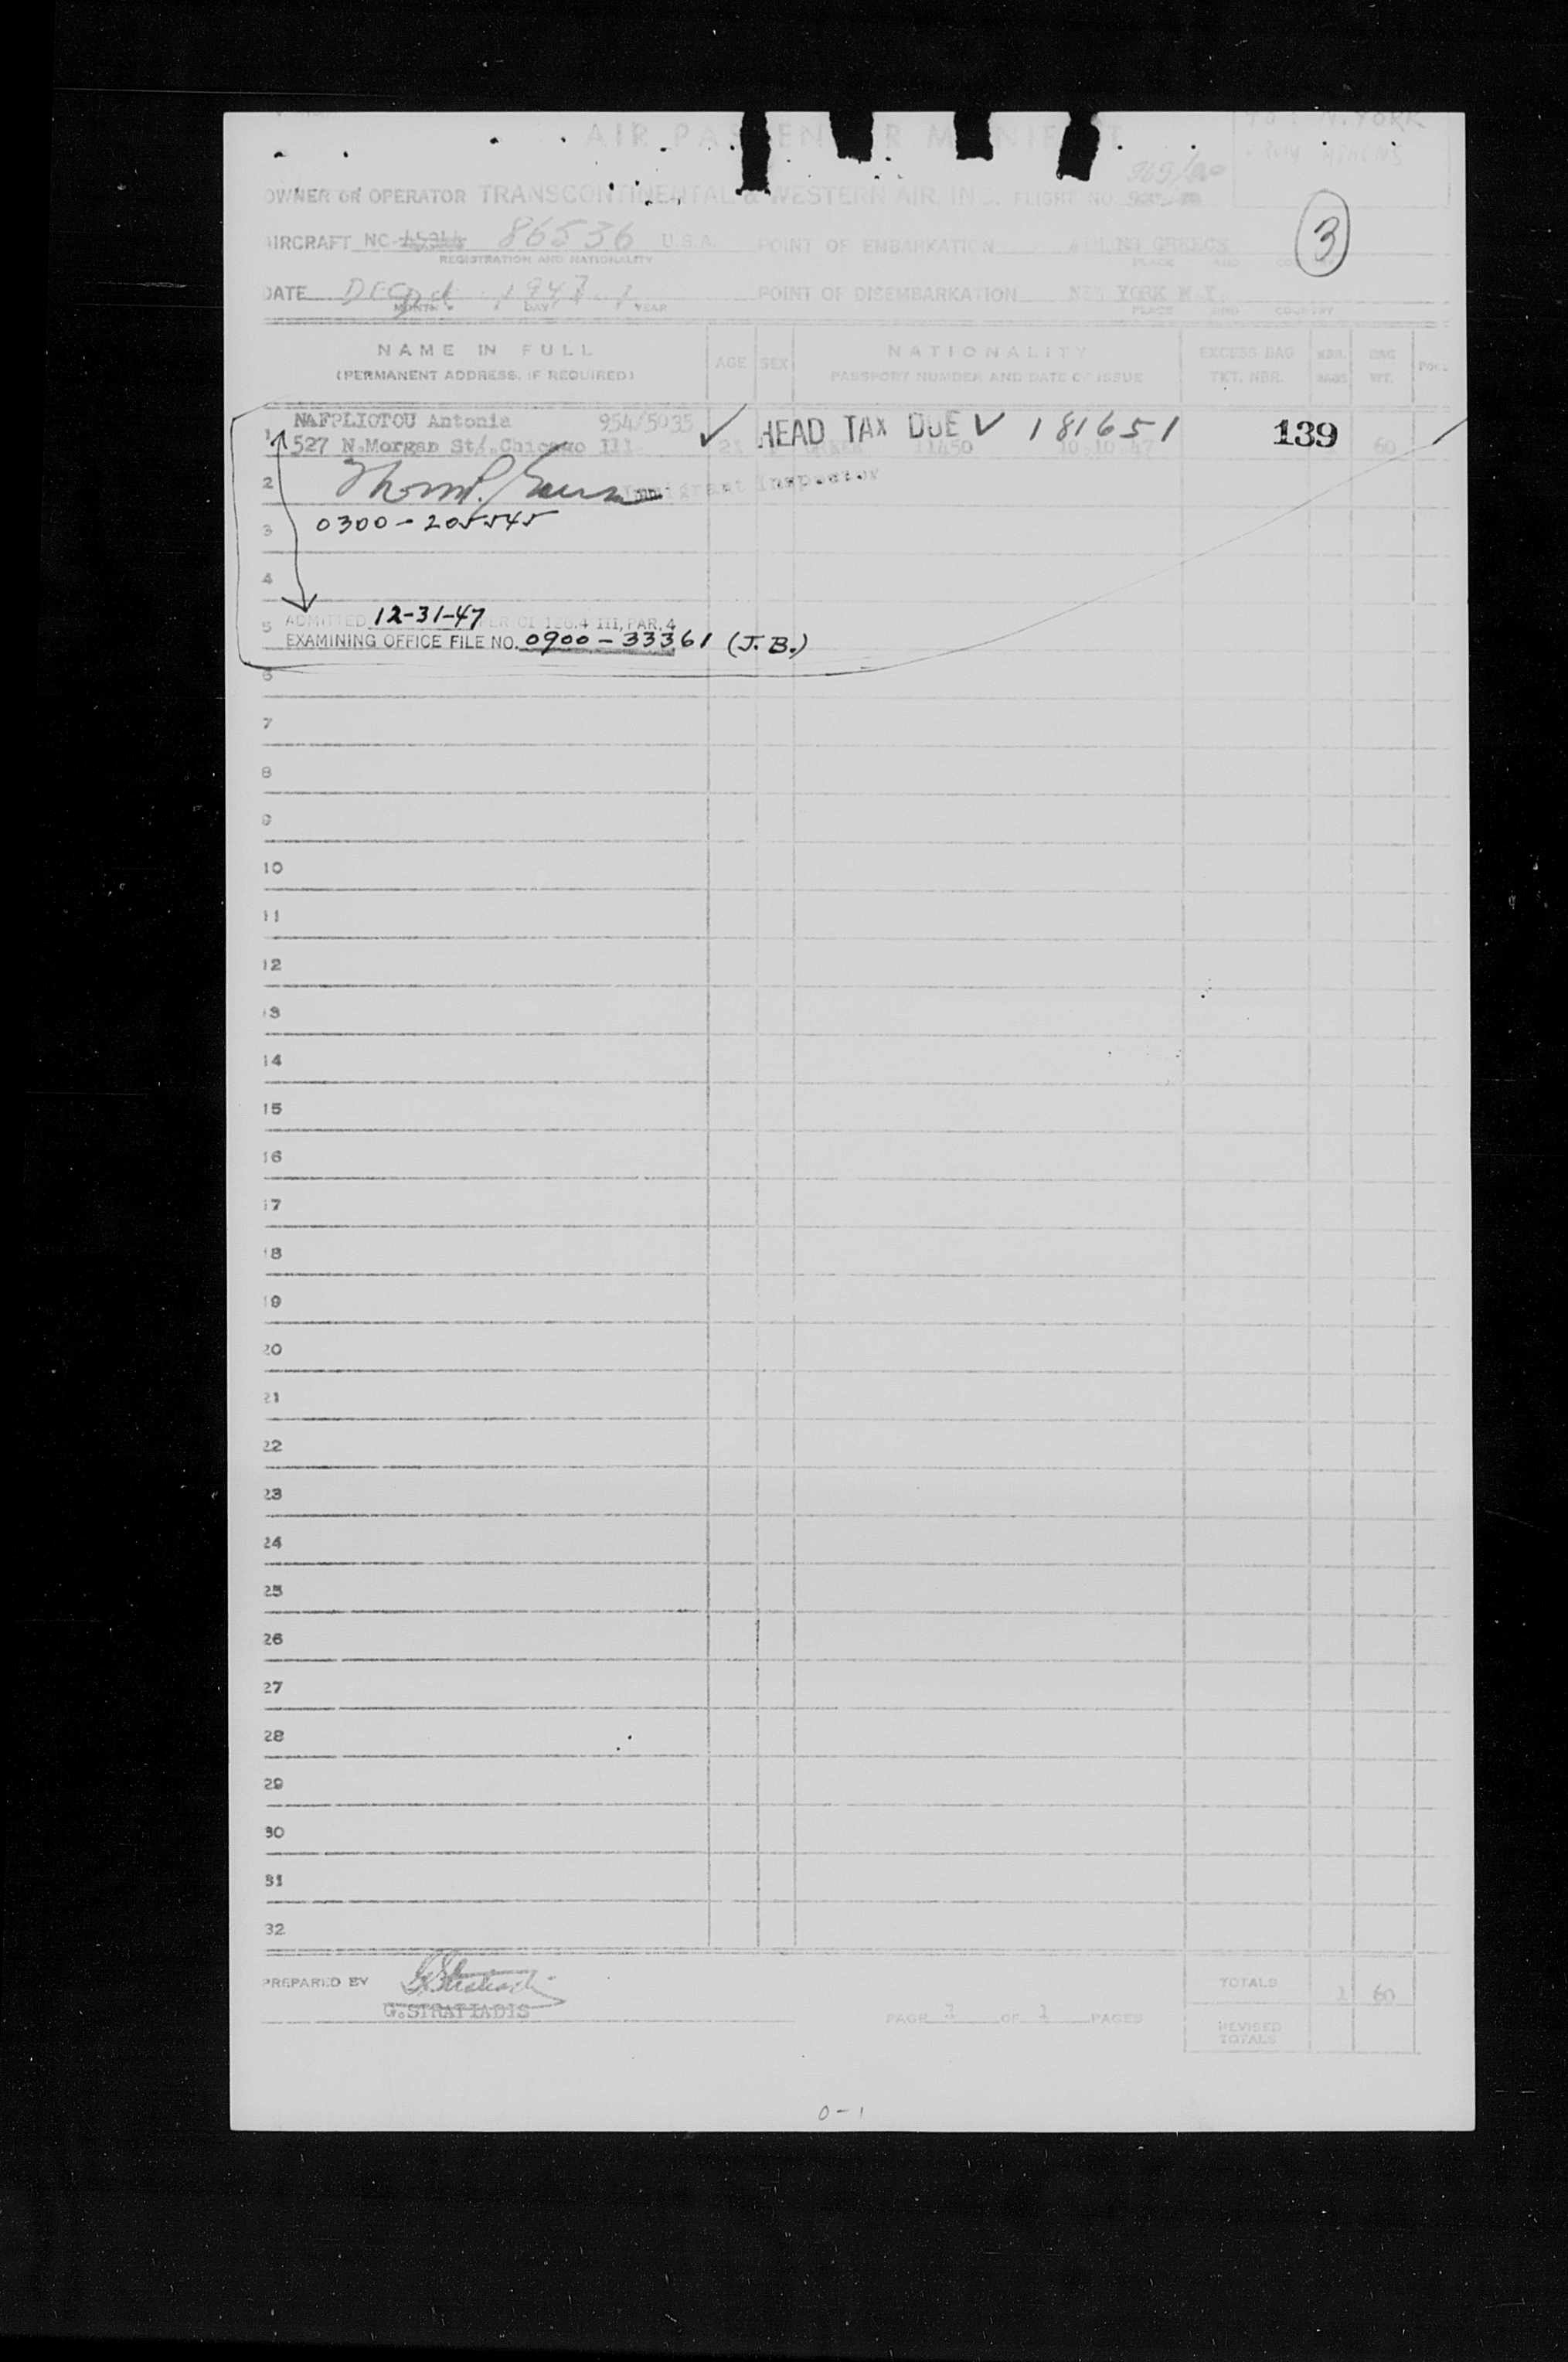 TO: N.YORK
AIR PASSENGER MANIFEST
ATHENS
OWNER OR OPERATOR TRANSCONTINENTAL & WESTERN AIR, INC. FLIGHT NO. 969/
3
AIRCRAFT NC 86536 U.S.A. POINT OF EMBARKATION GREECE
REGISTRATION AND NATIONALITY PLACE AND COUNTRY
DATE DEC 2nd 1947 POINT OF DISEMBARKATION NEW YORK N.Y.
MONTH DAY YEAR PLACE AND COUNTRY
NAME IN FULL AGE SEX NATIONALITY EXCESS BAG NBR. BAG
(PERMANENT ADDRESS, IF REQUIRED) PASSPORT NUMBER AND DATE OF ISSUE TKT. NBR. BAGS WT.
NAFPLIOTOU Antonia 954/5035 HEAD TAX DUE 181651 139
1 527 N.Morgan St/.Chicago Ill 11450 10.10.47 60
2 Immigrant Inspector
3 0300-205545
4
5 ADMITTED 12-31-47 PER CI 126.4 III, PAR. 4
EXAMINING OFFICE FILE NO. 0900-33361 (J.B.)
6
7
8
9
10
11
12
13
14
15
16
17
18
19
20
21
22
23
24
25
26
27
28
29
30
31
32
PREPARED BY TOTALS 1 60
G.STRATIADIS
PAGE 1 OF 1 PAGES REVISED
TOTALS
0-1